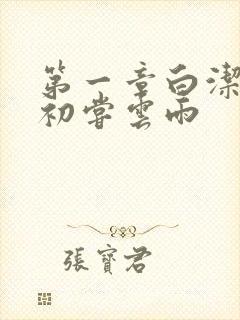 第一章白潔
初嘗雲雨
張寶君